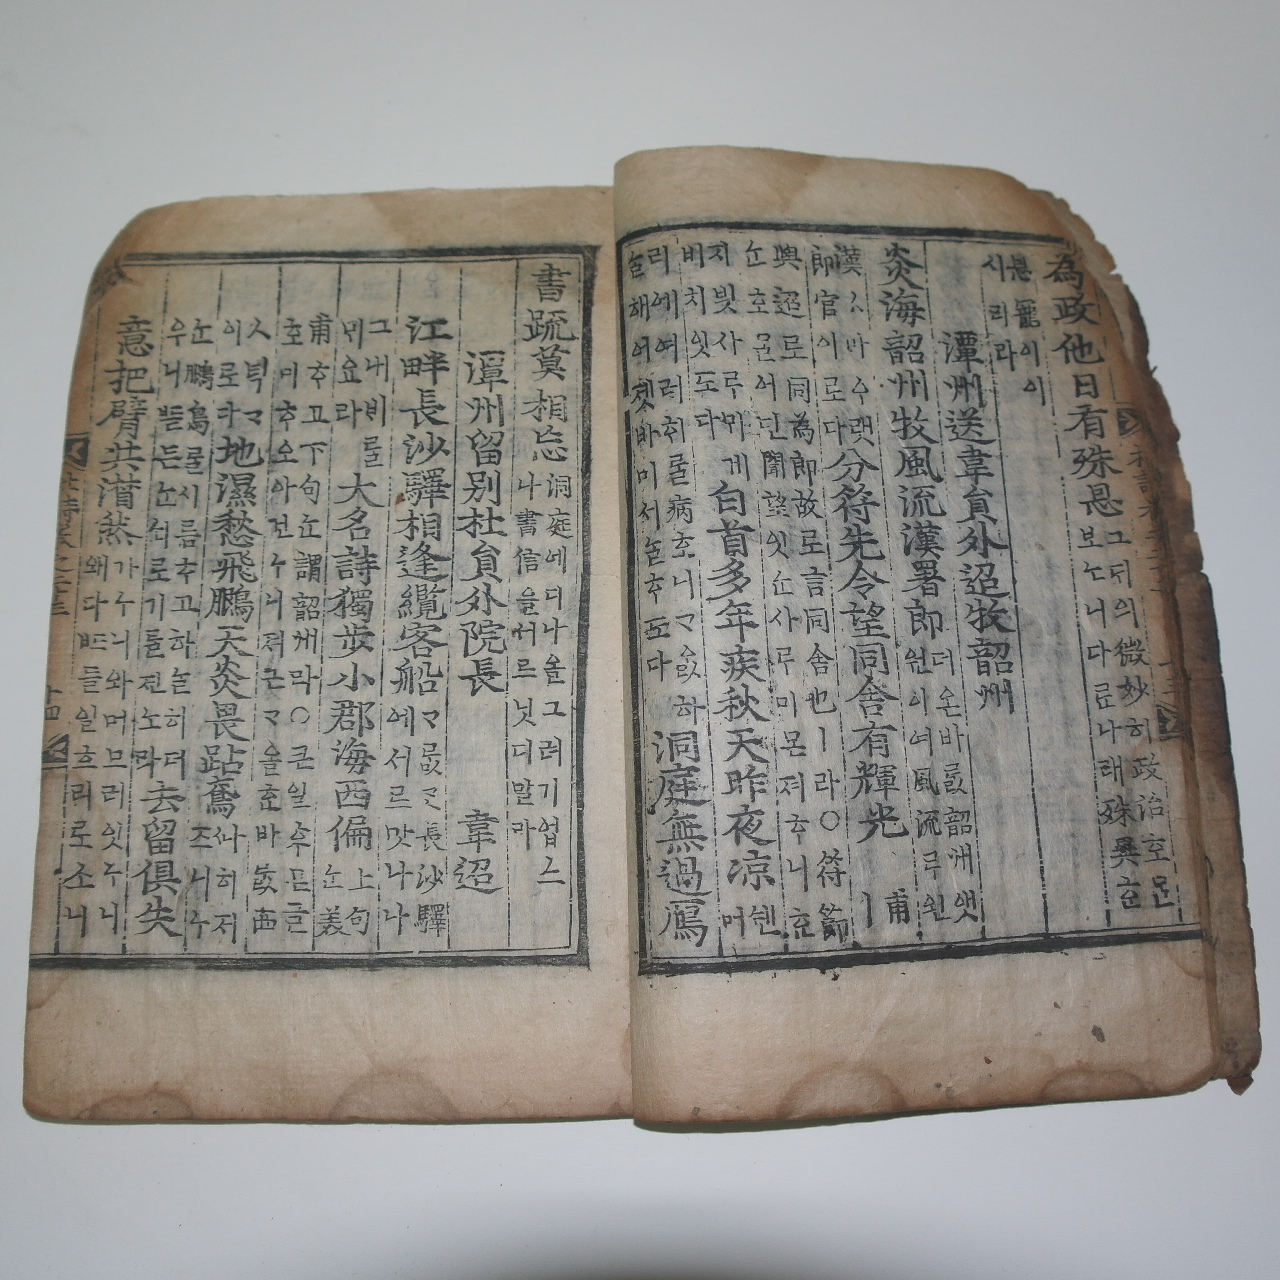 為政他日有殊恩 그듸의微妙히政治호ᄆᆞᆫ
보노니다ᄅᆞᆫ나래殊異ᄒᆞᆫ
恩寵이이
시리라
潭州送韋員外迢牧韶州
炎海韶州牧風流漢署郎 더온바ᄅᆞᆳ韶州앳
원이여風流ᄅᆞ윈
漢ㅅ마ᅀᆞ랫
郎官이로다
分符先令望同舍有輝光 甫
ㅣ
與迢로同為郎故로言同舍也ㅣ라○符節
ᄂᆞᆫ호ᄆᆞᆯ어딘聞望잇ᄂᆞᆫ사ᄅᆞ미몬져ᄒᆞ니ᄒᆞᆫ
지븻사ᄅᆞ미게
비치잇도다
白首多年疾秋天昨夜凉 셴
머
리예여러ᄒᆡᄅᆞᆯ病호니ᄀᆞᅀᆞᆳ하
ᄂᆞᆯ해어젯바미서ᄂᆞᆯᄒᆞ도다
洞庭無過鴈
書䟽莫相忘 洞庭에디나올그려기업스
나書信을서르닛디말라
潭州留別杜員外院長 韋迢
江畔長沙驛相逢纜客船 ᄀᆞᄅᆞᆷᄀᆞᆺ長沙驛
에서르맛나나
그내ᄇᆡᄅᆞᆯ
ᄆᆡ요라
大名詩獨步小郡海西偏 上句
ᄂᆞᆫ美
甫ᄒᆞ고下句ᄂᆞᆫ謂韶州ㅣ라○큰일후믄글
호미ᄒᆞ오아건니ᄂᆞ니져근ᄀᆞ올ᄒᆞᆫ바ᄅᆞᆳ西
ㅅ녁ᄀᆞ
이로다
地濕愁飛鵩天炎畏跕鳶 ᄯᅡ히저
즈니ᄂᆞ
ᄂᆞᆫ鵩鳥ᄅᆞᆯ시름ᄒᆞ고하ᄂᆞᆯ히더
우니ᄠᅥ든ᄂᆞᆫ쇠로기ᄅᆞᆯ젼노라
去留俱失
意把臂共潸然 가ᄂᆞ니와머므러잇ᄂᆞ니
왜다ᄠᅳ들일흐리로소니